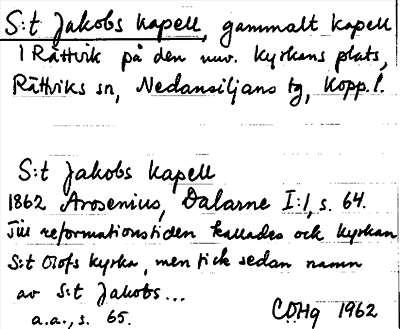 S:t Jakobs kapell, gammalt kapell
i Rättvik på den nuv. kyrkans plats,
Rättviks sn, Nedansiljans tg, Kopp. l.
S:t Jakobs kapell
1862 Arosenius, Dalarne I:1, s. 64.
Till reformationstiden kallades ock kyrkan
S:t Olofs kyrka, men fick sedan namn
av S:t Jakobs...
a.a., s. 65.
COHg 1962